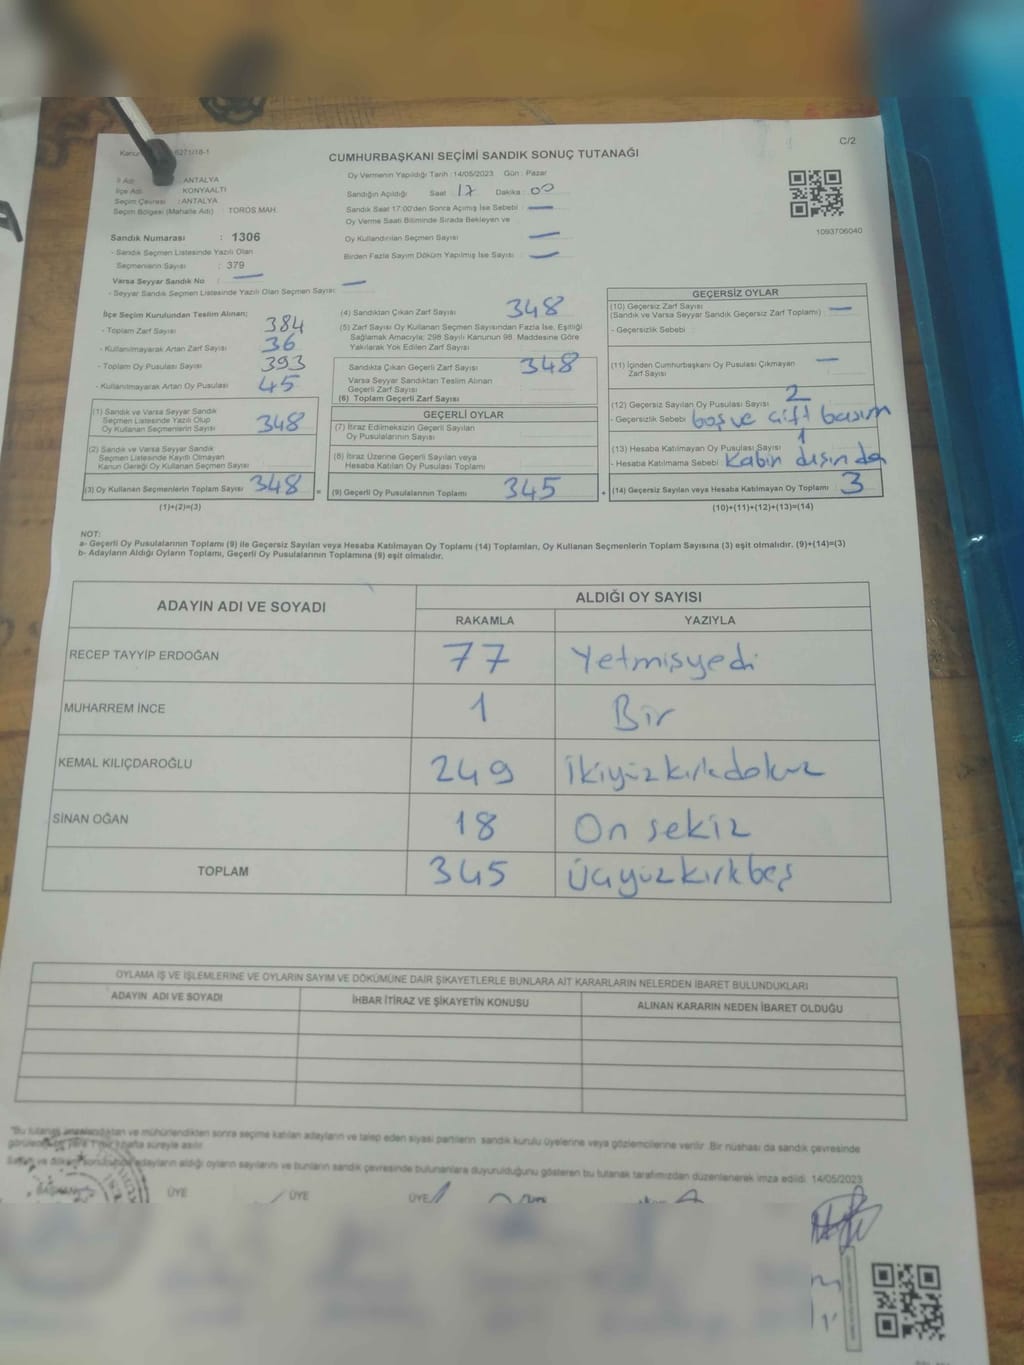 C/2
6271/18-1
CUMHURBAŞKANI SEÇİMİ SANDIK SONUÇ TUTANAĞI
İl Adı : ANTALYA
İlçe Adı : KONYAALTI
Seçim Çevresi : ANTALYA
Seçim Bölgesi (Mahalle Adı) TOROS MAH.
Sandık Numarası : 1306
- Sandık Seçmen Listesinde Yazılı Olan
Seçmenlerin Sayısı : 379
Varsa Seyyar Sandık No : —
- Seyyar Sandık Seçmen Listesinde Yazılı Olan Seçmen Sayısı: —
Oy Vermenin Yapıldığı Tarih : 14/05/2023 Gün : Pazar
Sandığın Açıldığı Saat 17 Dakika : 00
Sandık Saat 17:00'den Sonra Açılmış İse Sebebi : —
Oy Verme Saati Bitiminde Sırada Bekleyen ve
Oy Kullandırılan Seçmen Sayısı : —
Birden Fazla Sayım Döküm Yapılmış İse Sayısı : —
1093706040
İlçe Seçim Kurulundan Teslim Alınan;
- Toplam Zarf Sayısı : 384
- Kullanılmayarak Artan Zarf Sayısı : 36
- Toplam Oy Pusulası Sayısı : 393
- Kullanılmayarak Artan Oy Pusulası : 45
(1) Sandık ve Varsa Seyyar Sandık
Seçmen Listesinde Yazılı Olup
Oy Kullanan Seçmenlerin Sayısı : 348
(2) Sandık ve Varsa Seyyar Sandık
Seçmen Listesinde Kayıtlı Olmayan
Kanun Gereği Oy Kullanan Seçmen Sayısı :
(3) Oy Kullanan Seçmenlerin Toplam Sayısı : 348 =
(1)+(2)=(3)
(4) Sandıktan Çıkan Zarf Sayısı : 348
(5) Zarf Sayısı Oy Kullanan Seçmen Sayısından Fazla İse, Eşitliği
Sağlamak Amacıyla; 298 Sayılı Kanunun 98. Maddesine Göre
Yakılarak Yok Edilen Zarf Sayısı :
Sandıkta Çıkan Geçerli Zarf Sayısı : 348
Varsa Seyyar Sandıktan Teslim Alınan
Geçerli Zarf Sayısı :
(6) Toplam Geçerli Zarf Sayısı :
GEÇERLİ OYLAR
(7) İtiraz Edilmeksizin Geçerli Sayılan
Oy Pusulalarının Sayısı :
(8) İtiraz Üzerine Geçerli Sayılan veya
Hesaba Katılan Oy Pusulası Toplamı :
(9) Geçerli Oy Pusulalarının Toplamı : 345 +
GEÇERSİZ OYLAR
(10) Geçersiz Zarf Sayısı
(Sandık ve Varsa Seyyar Sandık Geçersiz Zarf Toplamı) : —
- Geçersizlik Sebebi :
(11) İçinden Cumhurbaşkanı Oy Pusulası Çıkmayan
Zarf Sayısı : —
(12) Geçersiz Sayılan Oy Pusulası Sayısı : 2
- Geçersizlik Sebebi : boş ve çift basım
(13) Hesaba Katılmayan Oy Pusulası Sayısı : 1
- Hesaba Katılmama Sebebi : Kabin dışında
(14) Geçersiz Sayılan veya Hesaba Katılmayan Oy Toplamı : 3
(10)+(11)+(12)+(13)=(14)
NOT:
a- Geçerli Oy Pusulalarının Toplamı (9) ile Geçersiz Sayılan veya Hesaba Katılmayan Oy Toplamı (14) Toplamları, Oy Kullanan Seçmenlerin Toplam Sayısına (3) eşit olmalıdır. (9)+(14)=(3)
b- Adayların Aldığı Oyların Toplamı, Geçerli Oy Pusulalarının Toplamına (9) eşit olmalıdır.
ADAYIN ADI VE SOYADI ALDIĞI OY SAYISI
RAKAMLA YAZIYLA
RECEP TAYYİP ERDOĞAN 77 Yetmişyedi
MUHARREM İNCE 1 Bir
KEMAL KILIÇDAROĞLU 249 İkiyüzkırkdokuz
SİNAN OĞAN 18 On sekiz
TOPLAM 345 Üçyüzkırkbeş
OYLAMA İŞ VE İŞLEMLERİNE VE OYLARIN SAYIM VE DÖKÜMÜNE DAİR ŞİKAYETLERLE BUNLARA AİT KARARLARIN NELERDEN İBARET BULUNDUKLARI
ADAYIN ADI VE SOYADI İHBAR İTİRAZ VE ŞİKAYETİN KONUSU ALINAN KARARIN NEDEN İBARET OLDUĞU
"Bu tutanak imzalandıktan ve mühürlendikten sonra seçime katılan adayların ve talep eden siyasi partilerin sandık kurulu üyelerine veya gözlemcilerine verilir. Bir nüshası da sandık çevresinde
süreyle asılır.
adayların aldığı oyların sayılarını ve bunların sandık çevresinde bulunanlara duyurulduğunu gösteren bu tutanak tarafımızdan düzenlenerek imza edildi. 14/05/2023
BAŞKAN ÜYE ÜYE ÜYE